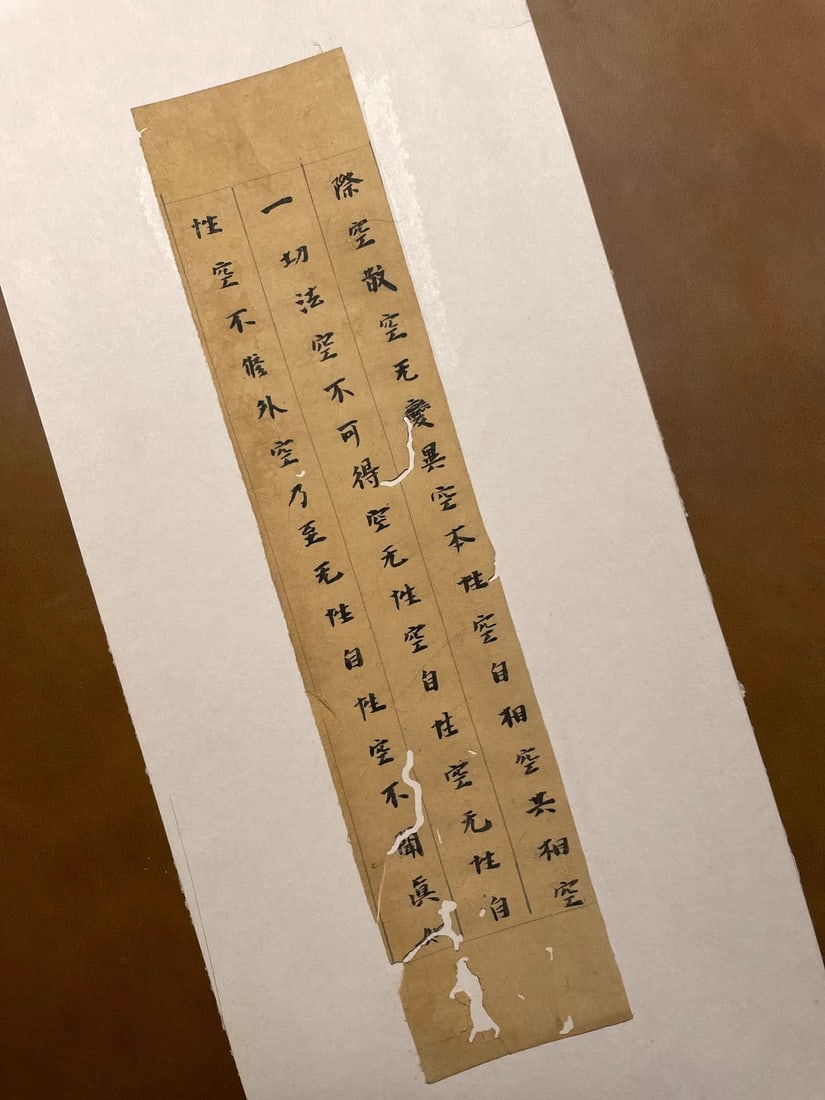 際空散空无變異空本性空自相空共相空
一切法空不可得空无性空自性空无性自
性空不修外空乃至无性自性空不聞真